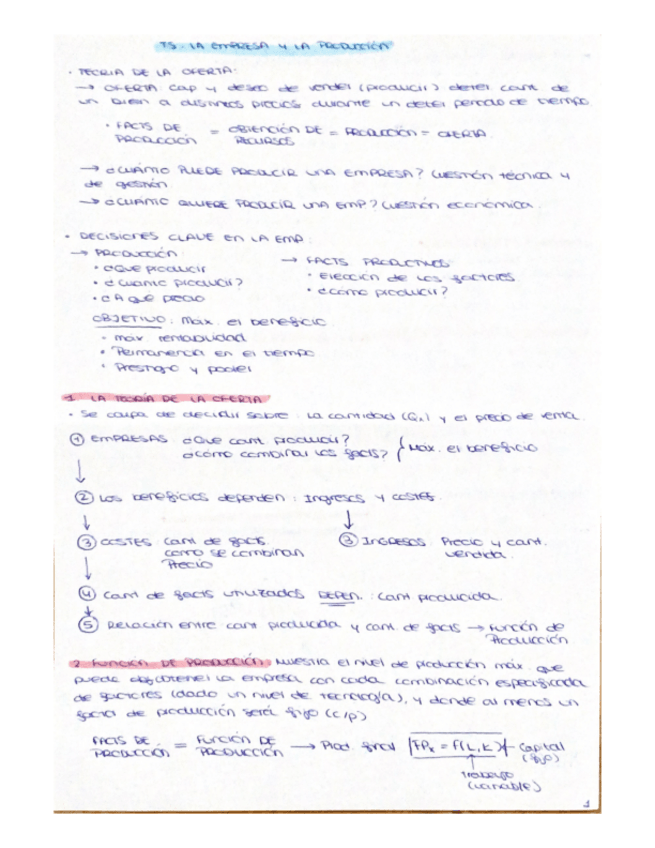 T5: LA EMPRESA Y LA PRODUCCIÓN
· TEORIA DE LA OFERTA:
→ OFERTA: cap y deseo de vender (producir) deter. cant. de
un bien a distintos precios durante un deter periodo de tiempo.
· FACTS DE PRODUCCIÓN = OBTENCIÓN DE RECURSOS = PRODUCCIÓN = OFERTA.
→ ¿CUÁNTO PUEDE PRODUCIR UNA EMPRESA? Cuestión técnica y
de gestión.
→ ¿CUÁNTO QUIERE PRODUCIR UNA EMP? Cuestión económica.
· DECISIONES CLAVE EN LA EMP:
→ PRODUCCIÓN:
· ¿Qué producir
· ¿Cuanto producir?
· ¿A qué precio
→ FACTS PRODUCTIVOS:
· Elección de los factores.
· ¿Cómo producir?
OBJETIVO: máx. el beneficio
· máx. rentabilidad
· Permanencia en el tiempo
· Prestigio y poder
1. LA TEORÍA DE LA OFERTA
· Se ocupa de decidir sobre: la cantidad (Qx) y el precio de venta.
① EMPRESAS ¿Que cant. producir?
¿cómo combinar los facts? { Máx. el beneficio
↓
② Los beneficios dependen: Ingresos y costes.
↓ ↓
③ COSTES: Cant de facts.
como se combinan
Precio
③ INGRESOS: Precio y cant.
vendida.
↓
④ Cant de facts utilizados DEPEN.: Cant producida.
↓
⑤ Relación entre cant producida y cant de facts → Función de
Producción
2. FUNCIÓN DE PRODUCCIÓN: Muestra el nivel de producción máx. que
puede obtener la empresa con cada combinación especificada
de factores (dado un nivel de tecnología), y donde al menos un
factor de producción será fijo (c/p)
FACTS DE PRODUCCIÓN = FUNCIÓN DE PRODUCCIÓN → Prod. final FPx = F(L,K) → Capital
(fijo)
↑
Trabajo
(variable)
1